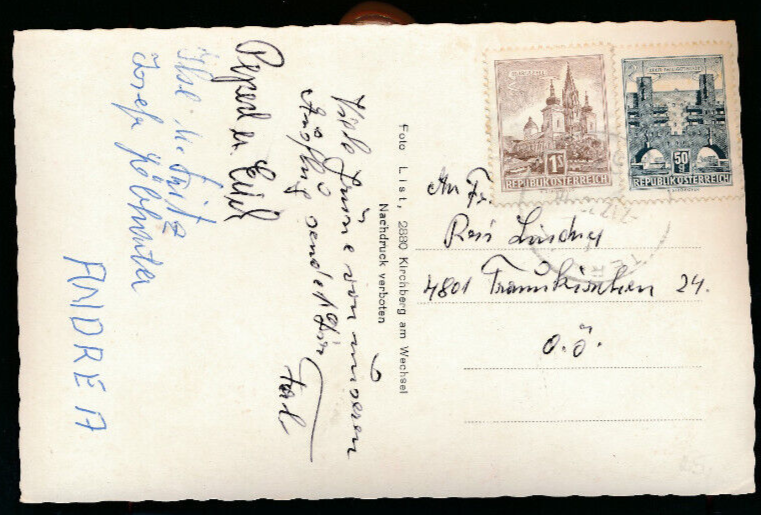 Viele Grüße von unserem
Ausflug sendet Dir
Pepperl u. Edi
Ilse u. Fritz
Josef
ANDREA
Foto List, 2880 Kirchberg am Wechsel
Nachdruck verboten
1S
REPUBLIK ÖSTERREICH
50g
REPUBLIK ÖSTERREICH
An Fr.
Rosi Lindner
4801 Traunkirchen 24.
O.Ö.